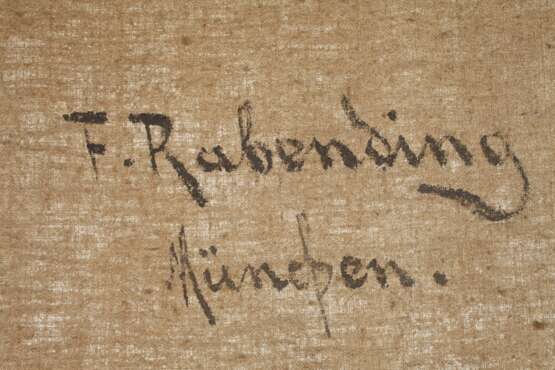 F. Rabending
München.